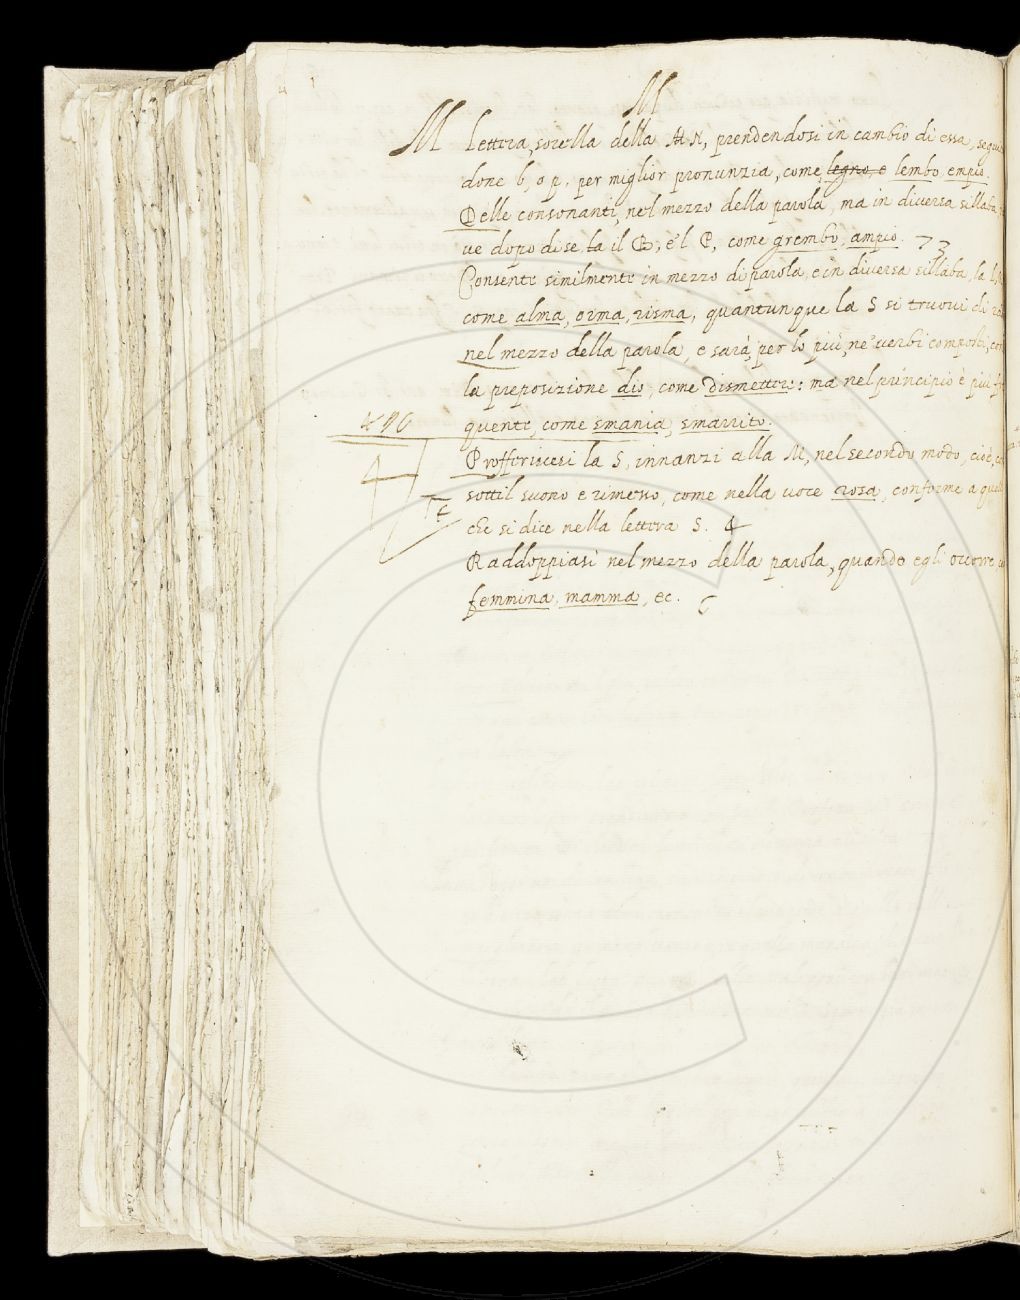 M
M Lettera, sorella della N, prendendosi in cambio di essa,
done b, o p, per miglior pronunzia, come legno, e lembo, empio.
Delle consonanti, nel mezzo della parola, ma in diversa sillaba,
ve dopo di se la il B, e'l P, come grembo, ampio.
Consente similmente in mezzo di parola, e in diversa sillaba, la
come alma, orma, risma, quantunque la S si truovi di
nel mezzo della parola, e sarà, per lo più, ne' verbi composti,
la preposizione dis, come dismettere: ma nel principio è più
quente, come smania, smarrito.
Profferiscesi la S, innanzi alla M, nel secondo modo, cioè,
sottil suono e rimesso, come nella voce rosa, conforme a
che si dice nella lettera S.
Raddoppiasi nel mezzo della parola, quando egli occorre,
femmina, mamma, ec.